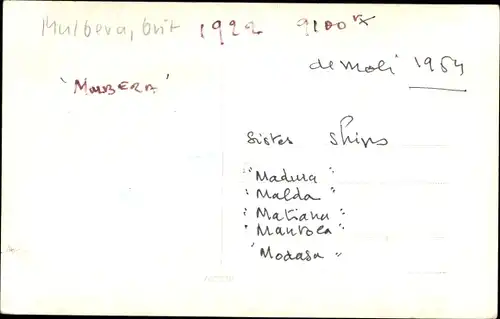 Mulbera, brit 1922 9100 RT
demoli 1954
"MULBERA"
sister ships
"Madura"
"Malda"
"Matiana"
"Mantola"
"Modasa"